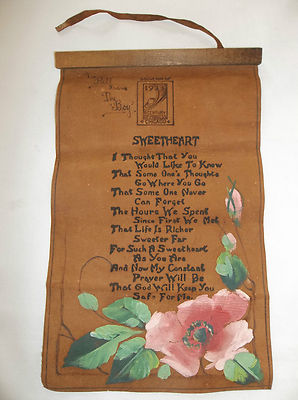 "Bill
From
The
Boy"
SOUVENIR OF
1933
A CENTURY
OF PROGRESS
CHICAGO
SWEETHEART
I Thought That You
Would Like To Know
That Some One's Thoughts
Go Where You Go
That Some One Never
Can Forget
The Hours We Spent
Since First We Met
That Life Is Richer
Sweeter Far
For Such A Sweetheart
As You Are
And Now My Constant
Prayer Will Be
That God Will Keep You
Safe For Me.